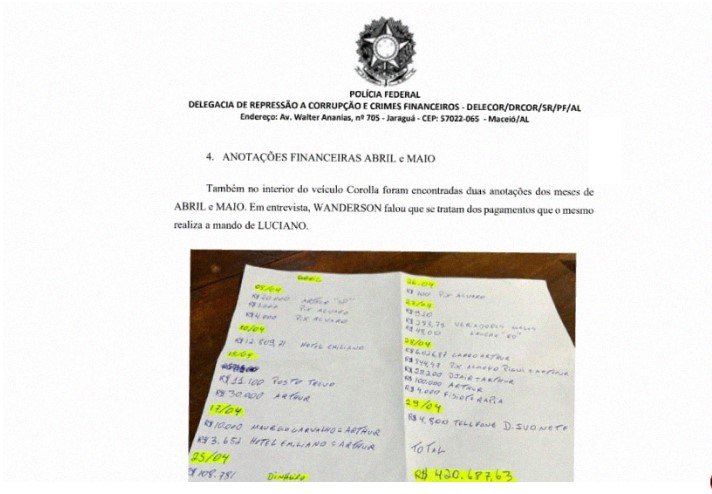 POLÍCIA FEDERAL
DELEGACIA DE REPRESSÃO A CORRUPÇÃO E CRIMES FINANCEIROS - DELECOR/DRCOR/SR/PF/AL
Endereço: Av. Walter Ananias, nº 705 - Jaraguá - CEP: 57022-065 - Maceió/AL
4. ANOTAÇÕES FINANCEIRAS ABRIL e MAIO
Também no interior do veículo Corolla foram encontradas duas anotações dos meses de
ABRIL e MAIO. Em entrevista, WANDERSON falou que se tratam dos pagamentos que o mesmo
realiza a mando de LUCIANO.
ABRIL
05/04
R$ 20.000 ARTHUR "SP"
PIX ALVARO
R$ 4.000 PIX ALVARO
10/04
R$ 12.809,71 HOTEL EMILIANO
R$ 11.100 POSTO TREVO
R$ 30.000 ARTHUR
17/04
R$ 10.000 MAURICIO CARVALHO = ARTHUR
R$ 3.652 HOTEL EMILIANO = ARTHUR
25/04
R$ 108.781 DINHEIRO
26.04
R$ 200 PIX ALVARO
27/04
R$ 920
28/04
CARRO ARTHUR
DJAIR = ARTHUR
R$ 100.000 ARTHUR
R$ 4.000 FISIOTERAPIA
29/04
R$ 4.800 TELEFONE D. IVONETE
TOTAL
R$ 420.687,63